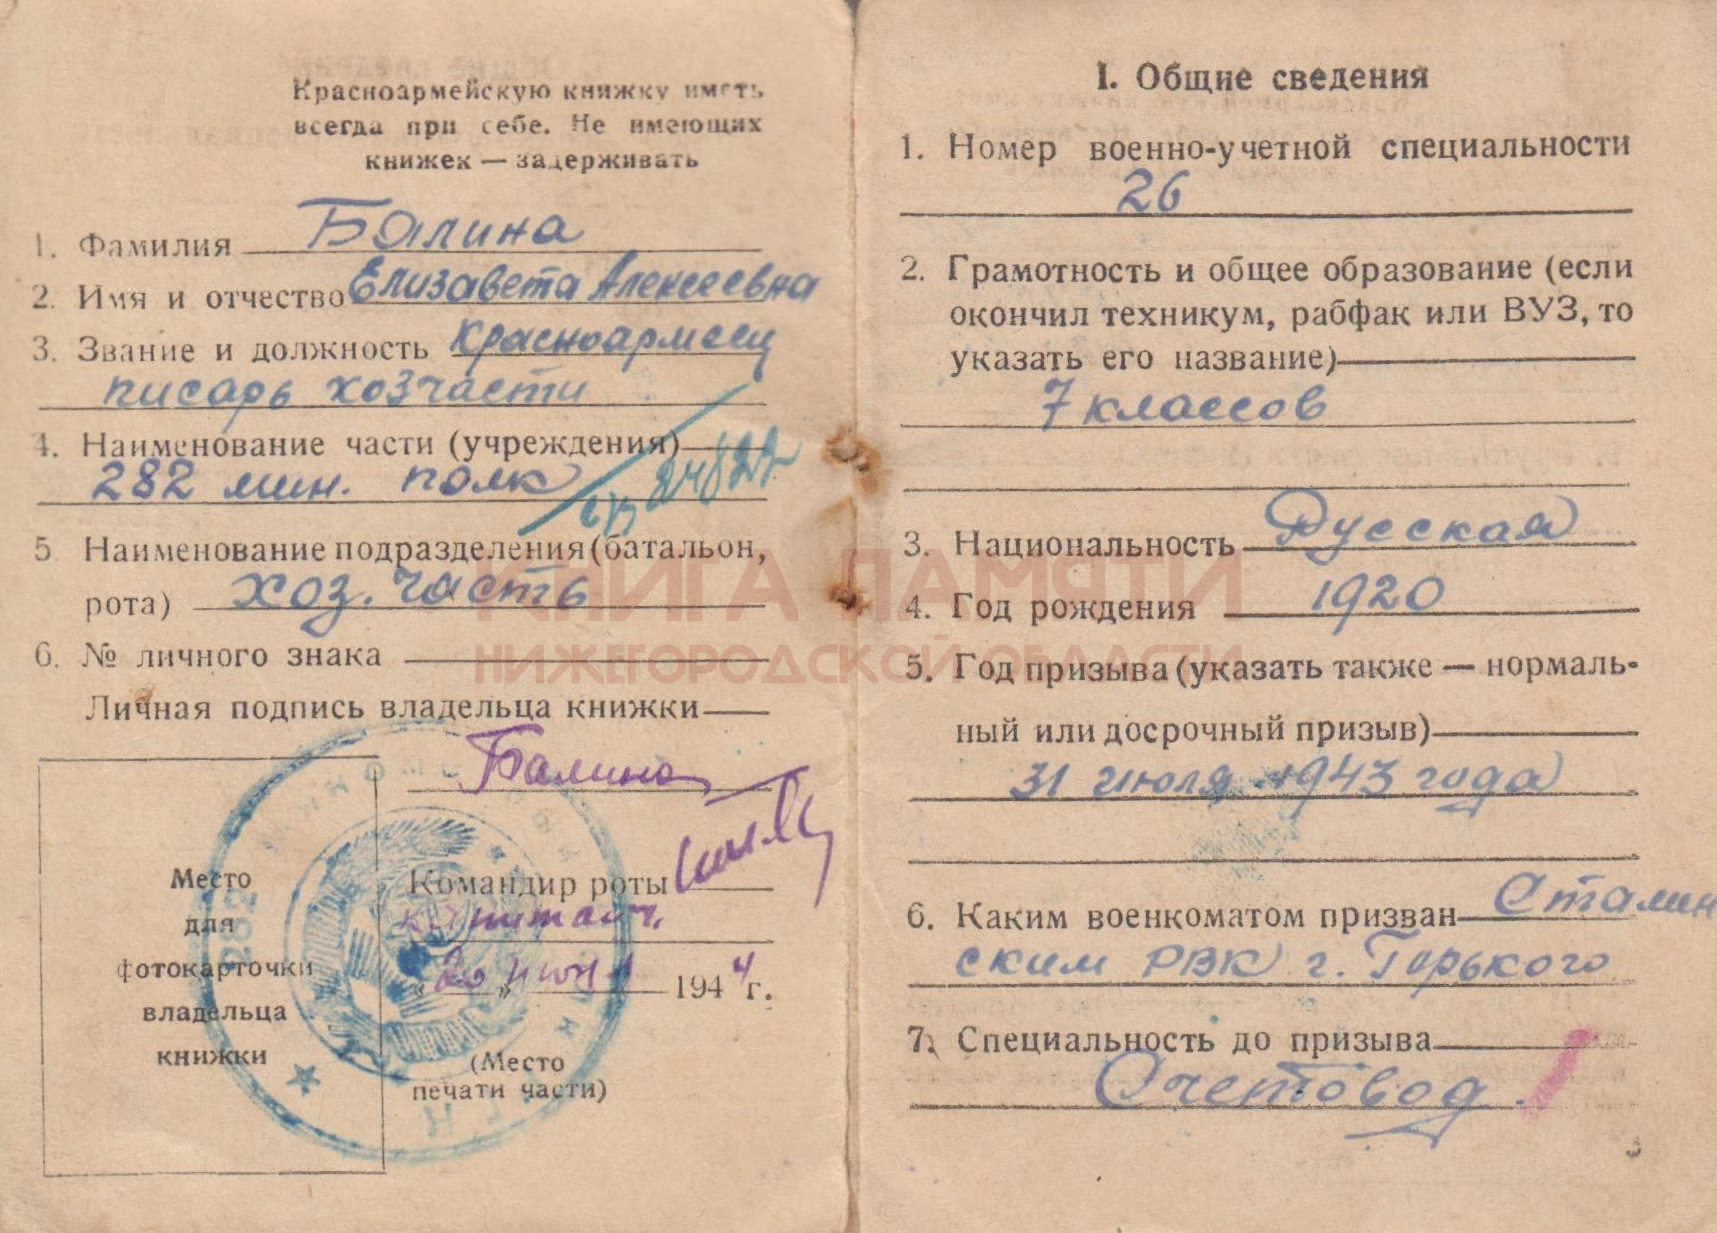 Красноармейскую книжку иметь
всегда при себе. Не имеющих
книжек — задерживать
1. Фамилия Балина
2. Имя и отчество Елизавета Алексеевна
3. Звание и должность Красноармеец
писарь хозчасти
4. Наименование части (учреждения)
282 мин. полк
5. Наименование подразделения (батальон,
рота) хоз. часть
6. № личного знака
Личная подпись владельца книжки
Балина
Место
для
фотокарточки
владельца
книжки
Командир роты
капитан
«20» июня 1944 г.
(Место
печати части)
282
I. Общие сведения
1. Номер военно-учетной специальности
26
2. Грамотность и общее образование (если
окончил техникум, рабфак или ВУЗ, то
указать его название)
7 классов
3. Национальность Русская
4. Год рождения 1920
5. Год призыва (указать также — нормаль-
ный или досрочный призыв)
31 июля 1943 года
6. Каким военкоматом призван Сталин
ским РВК г. Горького
7. Специальность до призыва
Счетовод.
КНИГА ПАМЯТИ
НИЖЕГОРОДСКОЙ ОБЛАСТИ